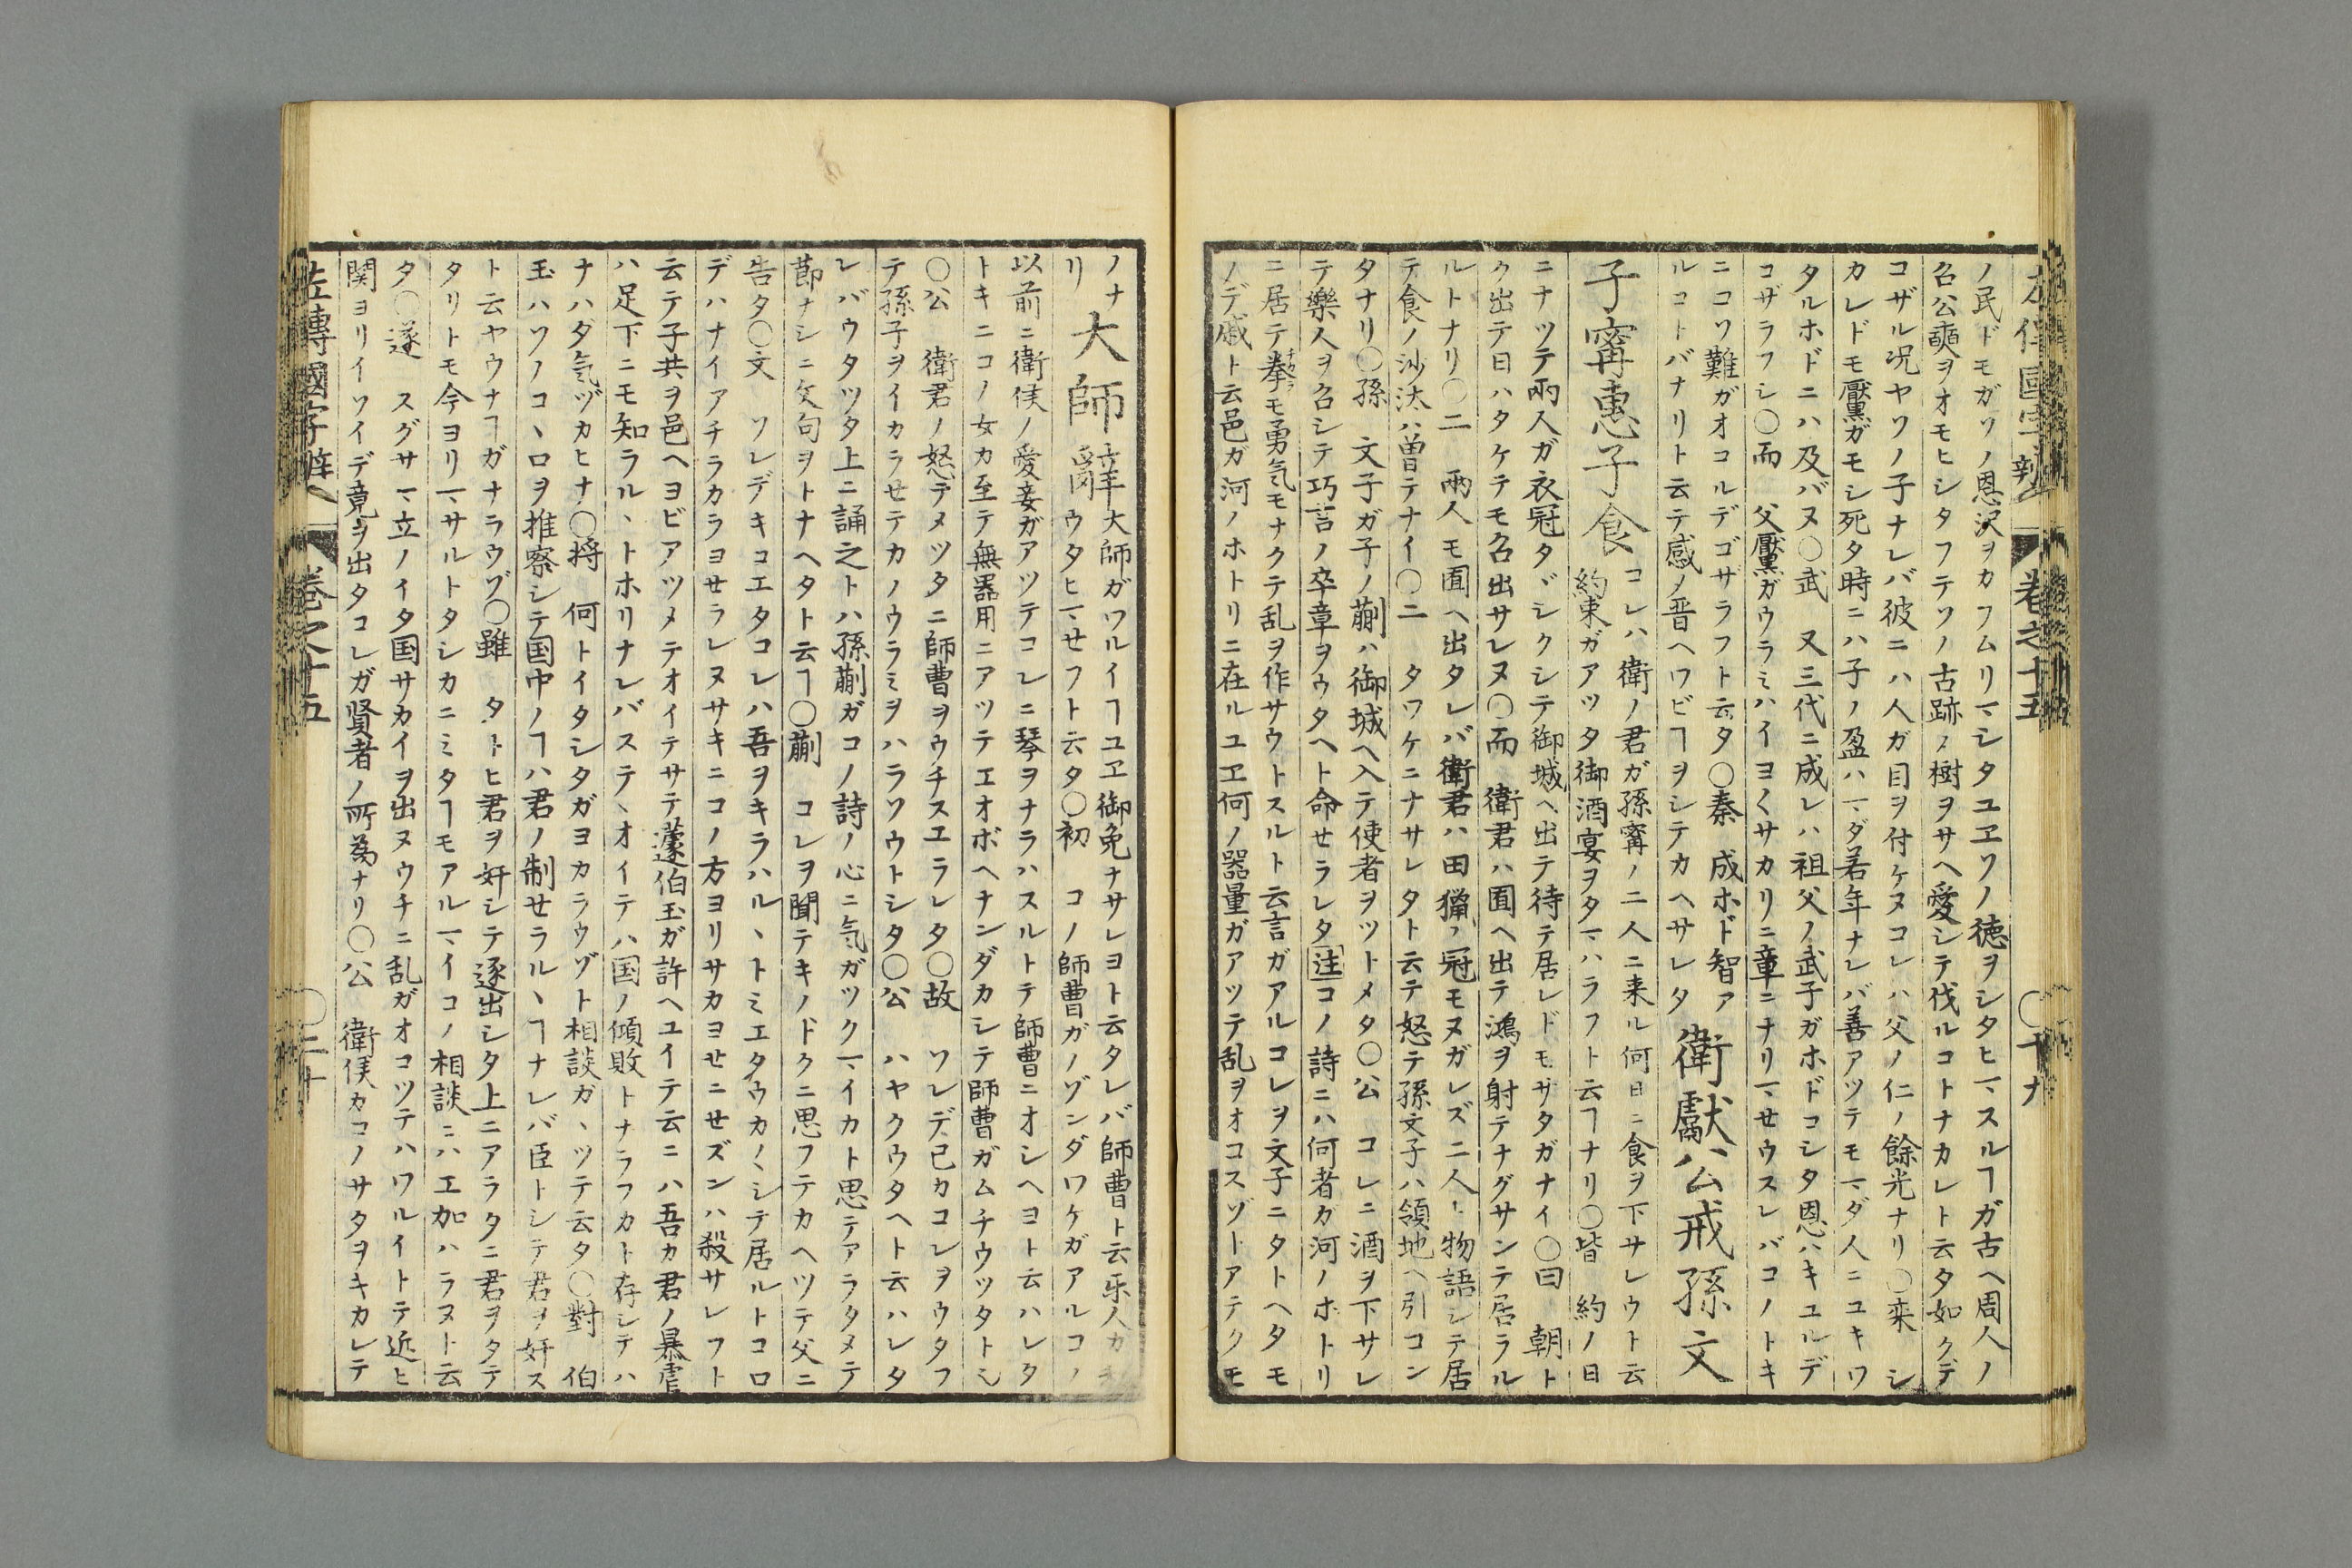 左傳國字辯 卷之十五 〇十九
ノ民ドモガソノ恩沢ヲカフムリマシタユヱソノ徳ヲシタヒマスルヿガ古ヘ周人ノ
召公奭ヲオモヒシタフテソノ古跡ノ樹ヲサヘ愛シテ伐ルコトナカレト云タ如クデ
コザル况ヤソノ子ナレバ彼ニハ人ガ目ヲ付ケヌコレハ父ノ仁ノ餘光ナリ〇栾 シ
カレドモ黶ガモシ死タ時ニハ子ノ盈ハマダ若年ナレバ善アツテモマダ人ニユキワ
タルホドニハ及バヌ〇武 又三代ニ成レハ祖父ノ武子ガホドコシタ恩ハキユルデ
コザラフシ〇而 父黶ガウラミハイヨ〱サカリニ章ニナリマセウスレバコノトキ
ニコソ難ガオコルデゴザラフト云タ〇秦 成ホド智ア
ルコトバナリト云テ感ノ晋ヘワビヿヲシテカヘサレタ 衛獻公戒孫文
子寗惠子食 コレハ衛ノ君ガ孫寗ノ二人ニ来ル何日ニ食ヲ下サレウト云
約束ガアツタ御酒宴ヲタマハラフト云ヿナリ〇皆 約ノ日
ニナツテ兩人ガ衣冠タヾシクシテ御城ヘ出テ待テ居レドモサタガナイ〇日 朝ト
ク出テ日ハタケテモ召出サレヌ〇而 衛君ハ囿ヘ出テ鴻ヲ射テナグサンテ居ラル
ルトナリ〇二 兩人モ囿ヘ出タレバ衛君ハ田獵ノ冠モヌガレズ二人ト物語シテ居
テ食ノ沙汰ハ曽テナイ〇二 タワケニナサレタト云テ怒テ孫文子ハ領地ヘ引コン
タナリ〇孫 文子ガ子ノ蒯ハ御城ヘ入テ使者ヲツトメタ〇公 コレニ酒ヲ下サレ
テ樂人ヲ召シテ巧言ノ卒章ヲウタヘト命セラレタ注コノ詩ニハ何者カ河ノホトリ
ニ居テ拳モ勇気モナクテ乱ヲ作サウトスルト云言ガアルコレヲ文子ニタトヘタモ
ノデ戚ト云邑ガ河ノホトリニ在ルユヱ何ノ器量ガアツテ乱ヲオコスゾトアテクモ
ノナ 大師 辞 大師ガワルイヿユヱ御免ナサレヨト云タレバ師曹ト云乐人カ
リ ウタヒマセフト云タ〇初 コノ師曹ガノゾンダワケガアルコノ
以前ニ衛侯ノ愛妾ガアツテコレニ琴ヲナラハスルトテ師曹ニオシヘヨト云ハレタ
トキニコノ女カ至テ無器用ニアツテエオボヘナンダカシテ師曹ガムチウツタトシ
〇公 衛君ノ怒テメツタニ師曹ヲウチスエラレタ〇故 ソレデ已カコレヲウタフ
テ孫子ヲイカラせテカノウラミヲハラソウトシタ〇公 ハヤクウタヘト云ハレタ
レバウタツタ上ニ誦之トハ孫蒯ガコノ詩ノ心ニ気ガツクマイカト思テアラタメテ
莭ナシニ文句ヲトナヘタト云ヿ〇蒯 コレヲ聞テキノドクニ思フテカヘツテ父ニ
告タ〇文 ソレデキコエタコレハ吾ヲキラハルヽトミエタウカ〱シテ居ルトコロ
デハナイアチラカラヨせラレヌサキニコノ方ヨリサカヨセニせズンハ殺サレフト
云テ子共ヲ邑ヘヨビアツメテオイテサテ蘧伯玉ガ許ヘユイテ云ニハ吾カ君ノ暴虐
ハ足下ニモ知ラルヽトホリナレバステヽオイテハ国ノ傾敗トナラフカト存シテハ
ナハダ気ヅカヒナ〇將 何トイタシタガヨカラウゾト相談ガヽツテ云タ〇對 伯
玉ハソノコヽロヲ推察シテ国中ノヿハ君ノ制せラルヽヿナレバ臣トシテ君ヲ奸ス
ト云ヤウナヿガナラウゾ〇雖 タトヒ君ヲ奸シテ逐出シタ上ニアラタニ君ヲタテ
タリトモ今ヨリマサルトタシカニミタヿモアルマイコノ相談ニハエ加ハラヌト云
タ〇遂 スグサマ立ノイタ国サカイヲ出ヌウチニ乱ガオコツテハワルイトテ近ヒ
関ヨリイソイデ竟ヲ出タコレガ賢者ノ所為ナリ〇公 衛侯カコノサタヲキカレテ
左傳國字辯 卷之十五 〇二十